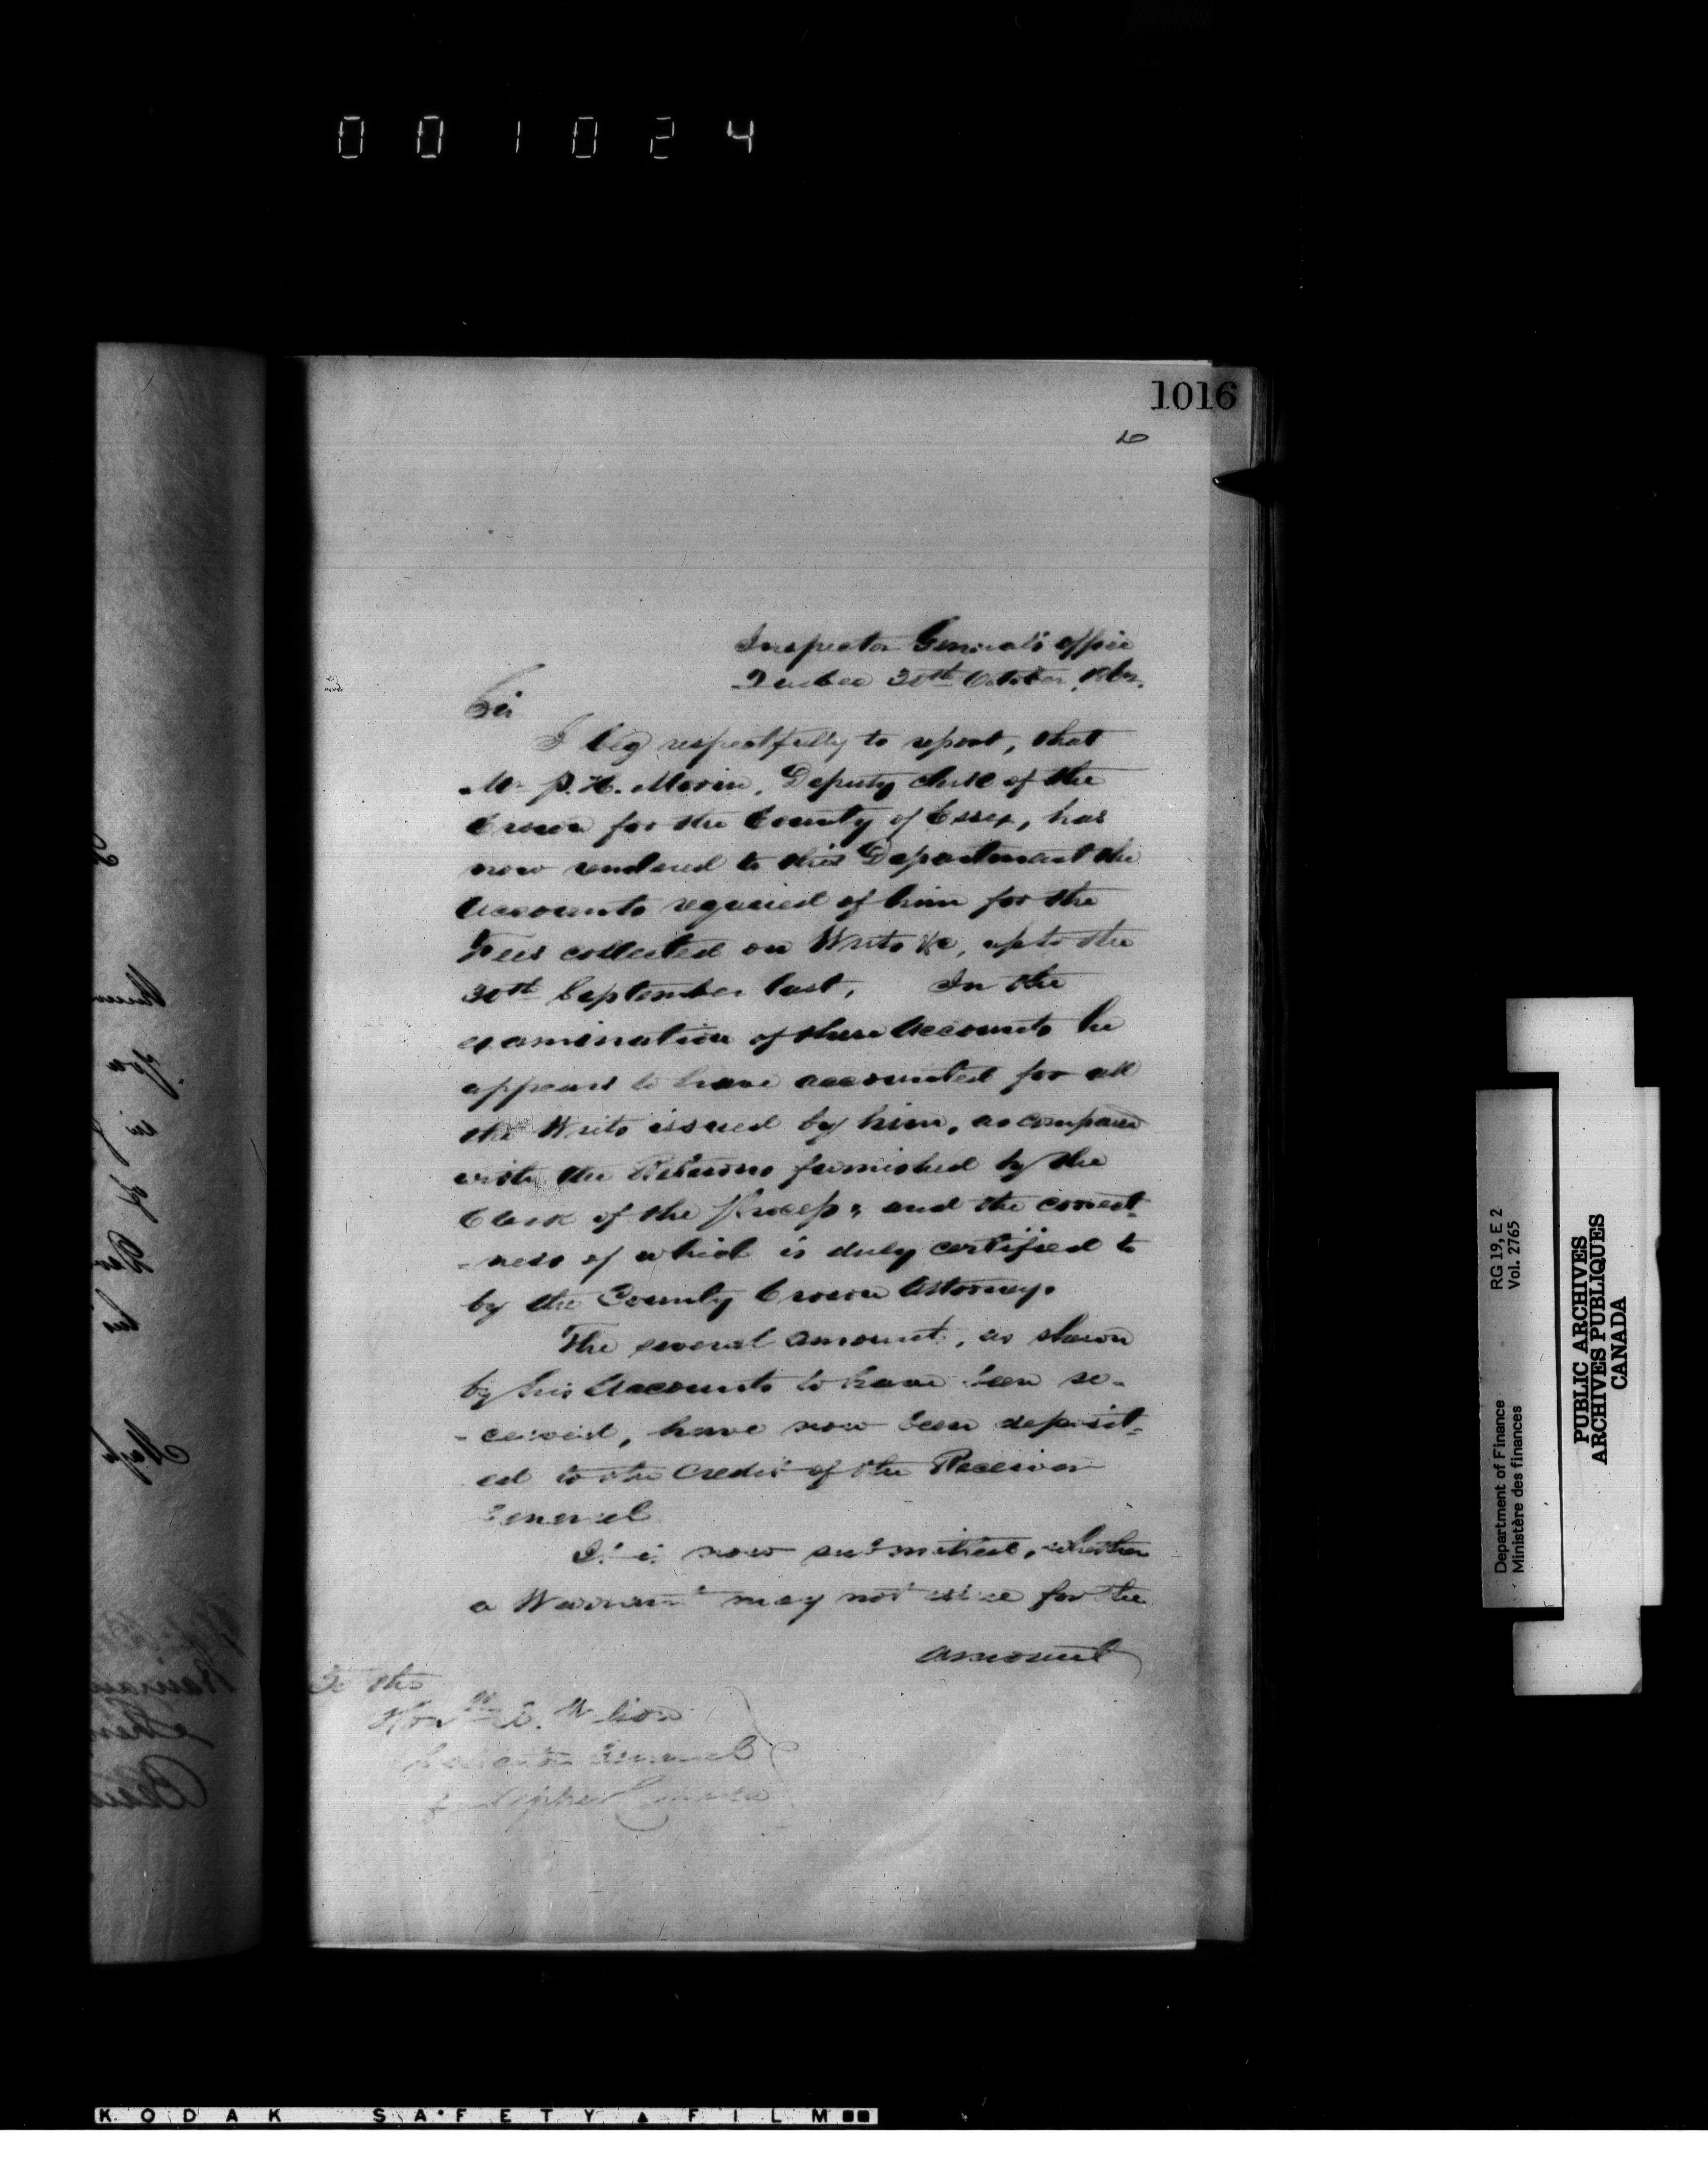 001024
1016
Inspector General's Office
Quebec 30th October, 1862.
Sir
I beg respectfully to report, that
Mr P. H. Morin, Deputy Clerk of the
Crown for the County of Essex, has
now rendered to this Department the
Accounts required of him for the
Fees collected on Writs &c, up to the
30th September last. In the
examination of these Accounts he
appears to have accounted for all
the Writs issued by him, as compared
with the Returns furnished by the
Clerk of the Process, and the correct-
-ness of which is duly certified to
by the County Crown Attorney.
The several amount, as shewn
by his Accounts to have been re-
-ceived, have now been deposit-
ed to the Credit of the Receiver
General
It is now submitted, whether
a Warrant may not issue for the
amount
To the
Honble A. Wilson
Solicitor General
Department of Finance RG 19, E 2
Ministère des finances Vol. 2765
PUBLIC ARCHIVES
ARCHIVES PUBLIQUES
CANADA
KODAK SAFETY FILM